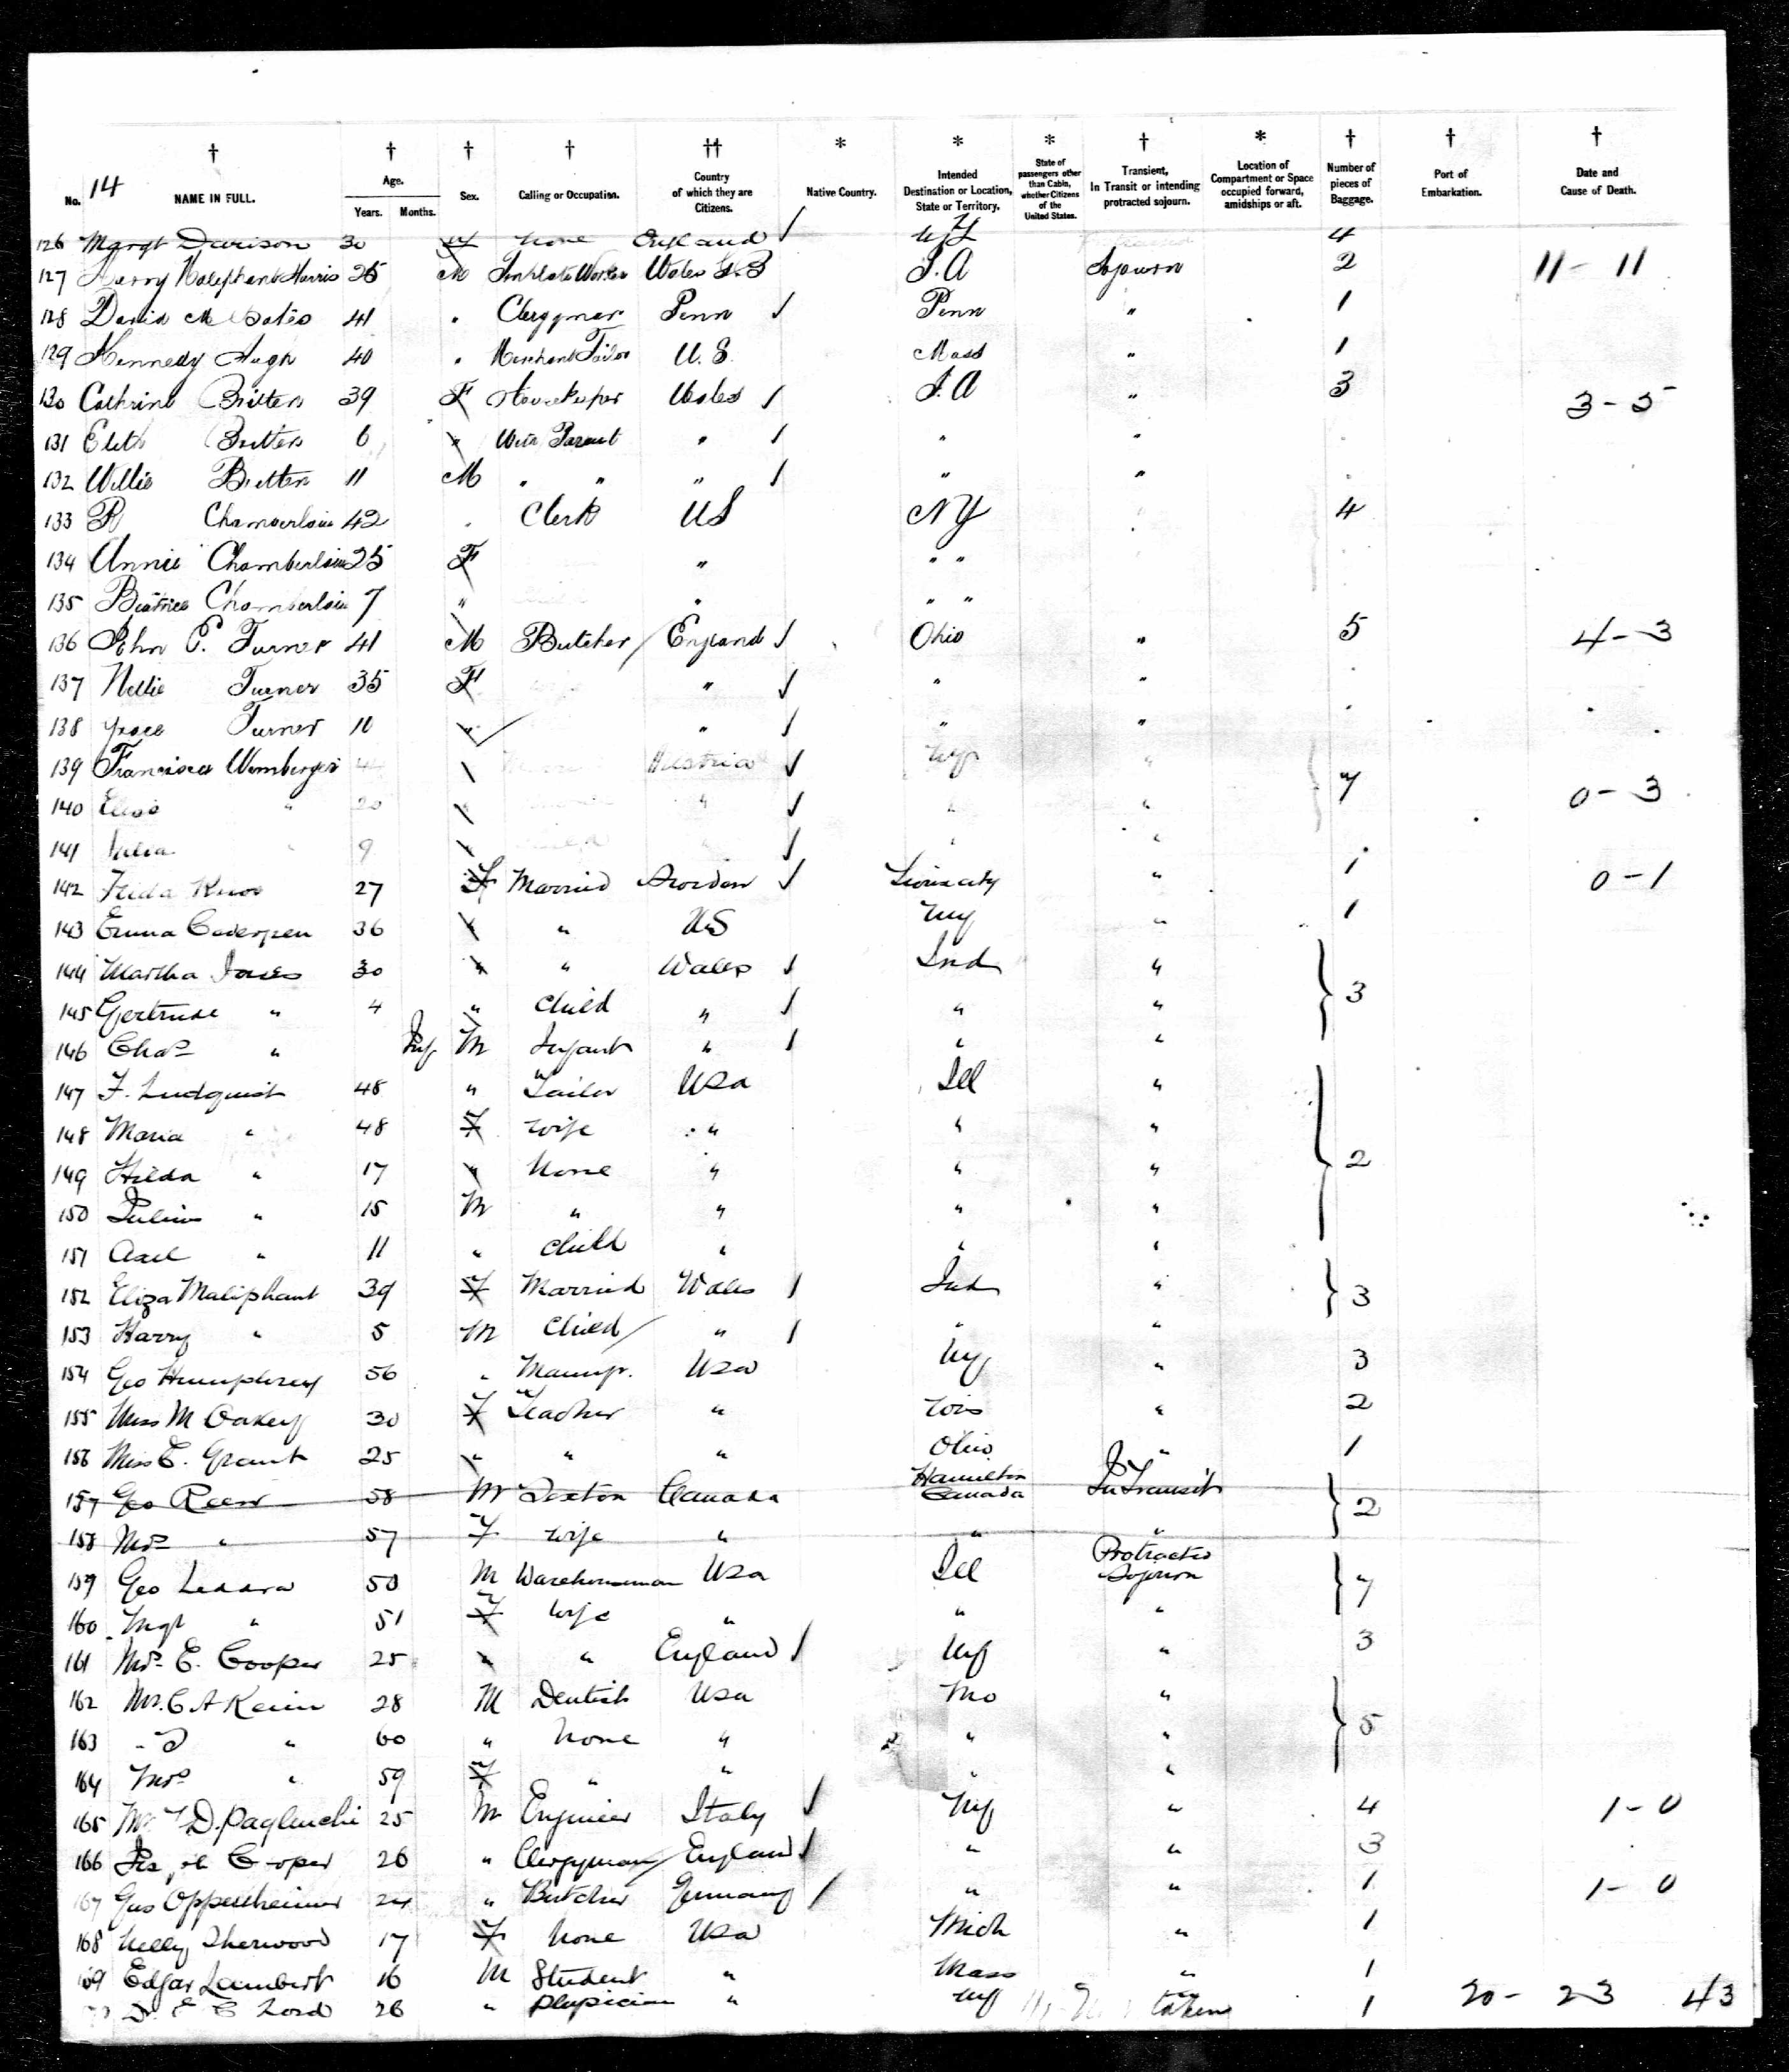 † † † † †† * * * † * † † †
No. 14 NAME IN FULL. Age. Years. Months. Sex. Calling or Occupation. Country of which they are Citizens. Native Country. Intended Destination or Location, State or Territory. State of passengers other than Cabin, whether Citizens of the United States. Transient, In Transit or intending protracted sojourn. Location of Compartment or Space occupied forward, amidships or aft. Number of pieces of Baggage. Port of Embarkation. Date and Cause of Death.
126 Margt Davison 30 none England NY 4
127 Harry Maliphant Harris 25 M Wales G.B 2 11 - 11
128 David M 41 " Clergyman Penn Penn " 1
129 Kennedy Hugh 40 " Merchant Tailor U.S. Mass " 1
130 39 F Housekeeper Wales " 3 3 - 5
131 6 " With Parent " " "
132 Willie 11 M " " " " "
133 R Chamberlain 42 " Clerk US NY 4
134 Annie Chamberlain 25 F " " "
135 Beatrice Chamberlain 7 " " " "
136 John P. Turner 41 M Butcher England Ohio " 5 4 - 3
137 Nellie Turner 35 F " " "
138 Grace Turner 10 " " " "
139 Austria NY " 7 0 - 3
140 " 20 " " "
141 9 "
142 27 F Married " 1 0 - 1
143 Emma 36 " " US NY " 1
144 Martha Jones 30 " " Wales Ind " 3
145 Gertrude " 4 " child " " "
146 Chas " Inf M Infant " " "
147 F. Lundquist 48 " Tailor USA Ill " 2
148 Maria " 48 F wife " " "
149 Hilda " 17 " None " " "
150 Julius " 15 M " " " "
151 Axel " 11 " child " " "
152 Eliza Maliphant 39 F Married Wales Ind " 3
153 Harry " 5 M child " " "
154 Geo Humphrey 56 " Manufr. USA NY " 3
155 Miss M Oakey 30 F Teacher " Wis " 2
156 Miss E. Grant 25 " " " Ohio " 1
157 Geo 58 M Sexton Canada Hamilton Canada In Transit 2
158 Mrs " 57 F wife " " "
159 Geo 50 M Warehouseman USA Ill Protracted Sojourn 7
160 Mgt " 51 F wife " " "
161 Mrs E. Cooper 25 " " England NY " 3
162 Mr. C A 28 M Dentist USA Mo " 5
163 " 60 " None " " "
164 Mrs " 59 F " " " "
165 Mr D. Pagliuchi 25 M Engineer Italy NY " 4 1 - 0
166 Cooper 26 " Clergyman England " " 3
167 Gus Oppenheimer 24 " Butcher Germany " " 1 1 - 0
168 Nelly Sherwood 17 F None USA Mich " 1
169 Edgar Lambert 16 M Student " Mass " 1
E C Lord 26 " Physician " NY taken 1 20 - 23 43